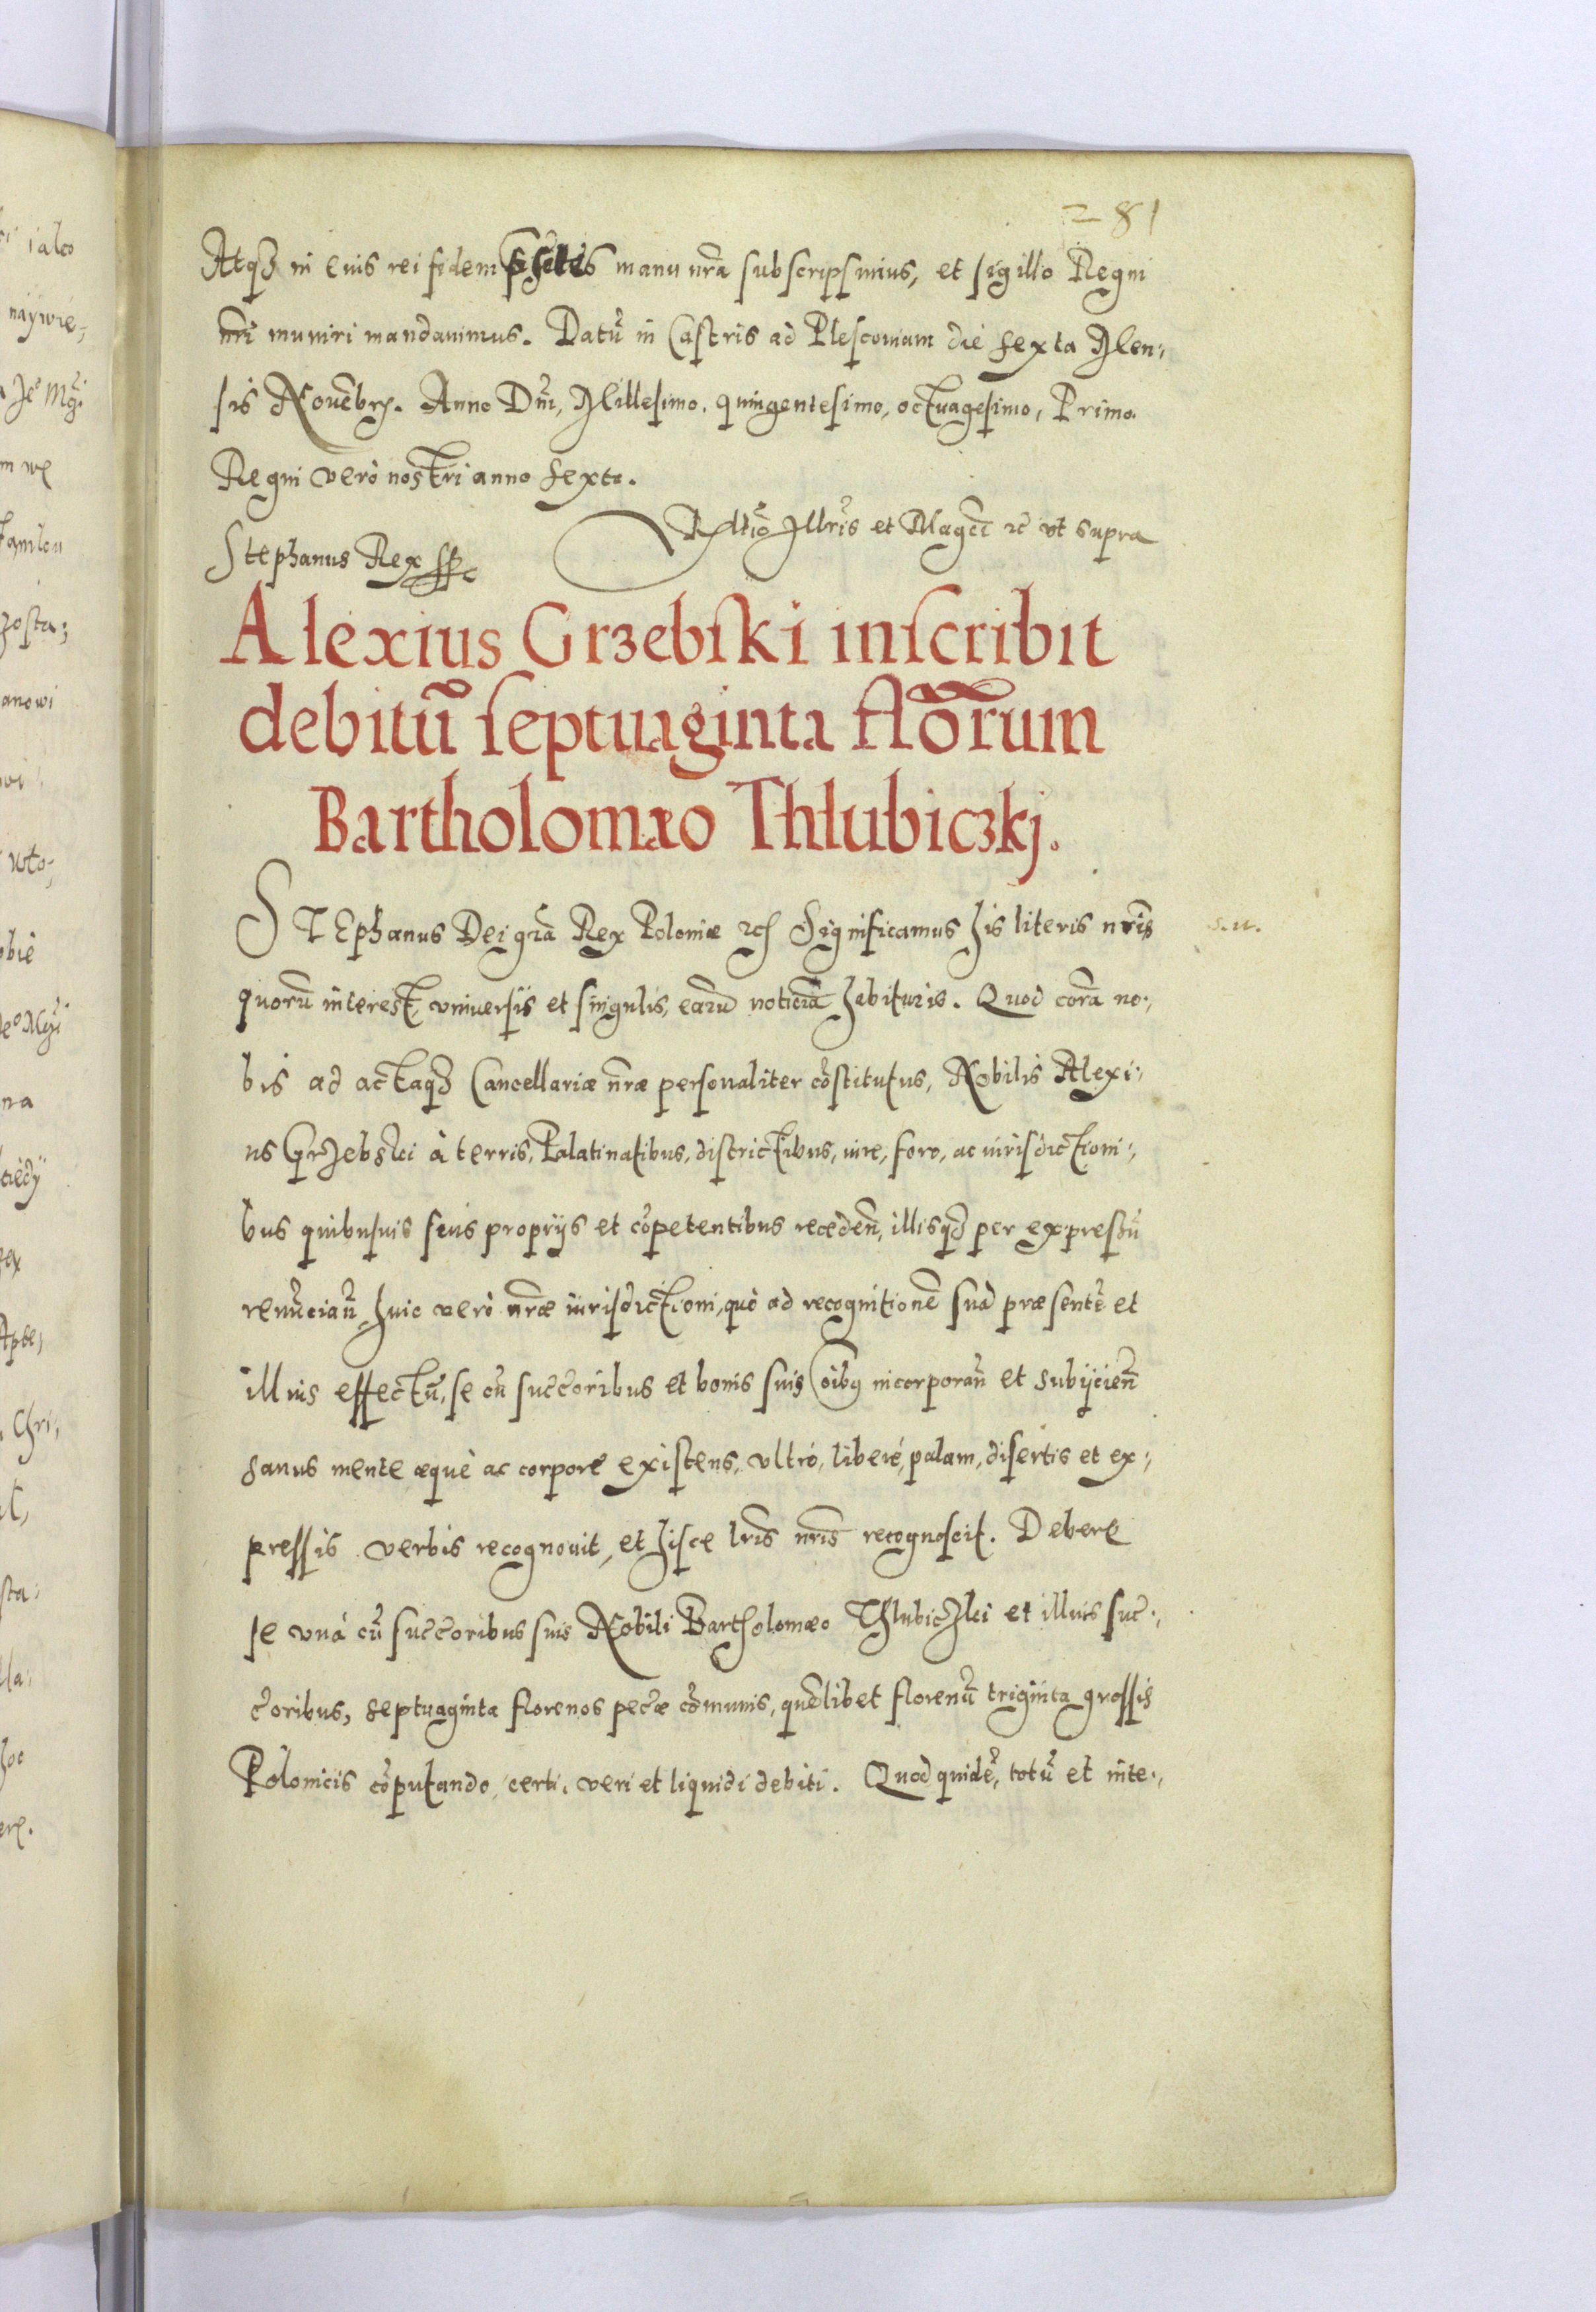 281
Atq3 in eius rei fidem pñtes manu nrã subscripsimus, et sigillo Regni
nrĩ muniri mandauimus. Datũ in Castris ad Plescouiam die sexta Men:,
sis Nouẽbrꝭ. Anno Dñi, Millesimo, quingentesimo, octuagesimo, Primo.
Regni verò nostri anno sexto.
Stephanus Rex sst
Rltiõ Illrĩs et Magcĩ ꝛc̃ vt supra
Alexius Grzebſki inſcribit
debitũ ſeptuaginta flõrum
Bartholomæo Thlubiczkj.
STEphanus Dei gr̃a Rex Poloniæ ꝛcꝭ Significamus his literis nrĩs
s. n.
quorũ interest, vniuersis et singulis, earũ noticiã habituris. Quod corã no:,
bis ad actaq3 Cancellariæ nr̃æ personaliter cõstitutus, Nobilis Alexi:,
us Grzebski à terris, Palatinatibus, districtibus, iure, foro, ac iurisdictioni:,
bus quibusuis seus proprijs et cõpetentibus receden̄, illisq3 per expressũ
renũcian̄, huic verò nr̃æ iurisdictioni, quò ad recognitionẽ suã præsentẽ et
illius effectũ, se cũ succ̃oribus et bonis suis oĩbꝰ incorporan̄ et subijcien̄
sanus mente æquè ac corpore existens, vltrò, liberè, palam, disertis et ex:,
pressis verbis recognouit, et hisce lrĩs nrĩs recognoscit. Debere
se vnà cũ succ̃oribus suis Nobili Bartholomæo Thlubiczki et illius suc̃:,
c̃oribus, septuaginta florenos pec̃æ cõmunis, quẽlibet florenũ triginta grossis
Polonicis cõputando, certi, veri et liquidi debiti. Quod quidẽ, totũ et inte:,